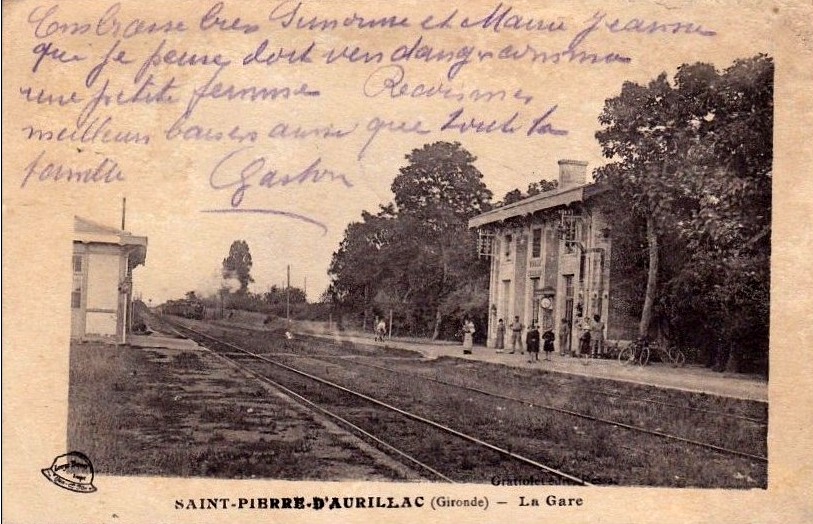 Embrasse bien Simonne et Marie Jeanne
que je pense doit vendanger comme
une petite femme Recois mes
meilleurs baisers ainsi que toute la
famille Gaston
Gratiolet édit.
SAINT-PIERRE-D'AURILLAC (Gironde) - La Gare